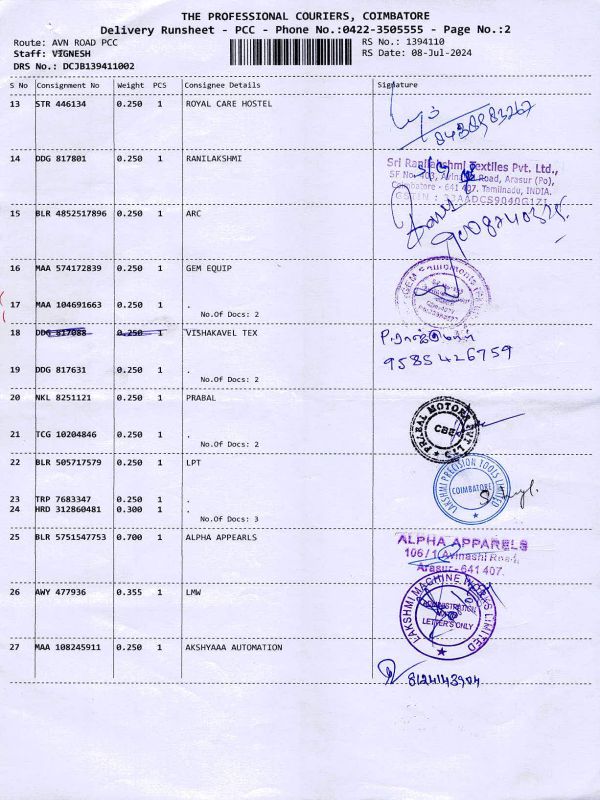 THE PROFESSIONAL COURIERS, COIMBATORE
Delivery Runsheet - PCC - Phone No.:0422-3505555 - Page No.:2
Route: AVN ROAD PCC
RS No.: 1394110
Staff: VIGNESH
RS Date: 08-Jul-2024
DRS No.: DCJB139411002
S No Consignment No Weight PCS Consignee Details Signature
13 STR 446134 0.250 1 ROYAL CARE HOSTEL
8438983267
14 DDG 817801 0.250 1 RANILAKSHMI
Sri Ranilakshmi Textiles Pvt. Ltd.,
SF No. 403, Avinashi Road, Arasur (Po),
Coimbatore - 641 407. Tamilnadu, INDIA.
GSTIN : 33AADCS9040G1Z1
15 BLR 4852517896 0.250 1 ARC
16 MAA 574172839 0.250 1 GEM EQUIP
17 MAA 104691663 0.250 1 .
No.Of Docs: 2
18 DDG 817088 0.250 1 VISHAKAVEL TEX
9585426759
19 DDG 817631 0.250 1 .
No.Of Docs: 2
20 NKL 8251121 0.250 1 PRABAL
PRABAL MOTORS PVT LTD
CBE
21 TCG 10204846 0.250 1 .
No.Of Docs: 2
22 BLR 505717579 0.250 1 LPT
LAKSHMI PRECISION TOOLS LIMITED
COIMBATORE
23 TRP 7683347 0.250 1 .
24 HRD 312860481 0.300 1 .
No.Of Docs: 3
25 BLR 5751547753 0.700 1 ALPHA APPEARLS
ALPHA APPARELS
106/1 Avinashi Road,
Arasur - 641 407.
26 AWY 477936 0.355 1 LMW
LAKSHMI MACHINE WORKS LIMITED
ADMINISTRATION
LETTERS ONLY
27 MAA 108245911 0.250 1 AKSHYAAA AUTOMATION
8124143904